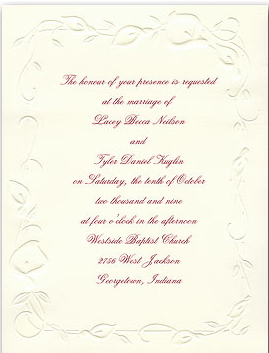 The honour of your presence is requested
at the marriage of
Lacey Becca Neilson
and
Tyler Daniel Kuglin
on Saturday, the tenth of October
two thousand and nine
at four o'clock in the afternoon
Westside Baptist Church
2756 West Jackson
Georgetown, Indiana